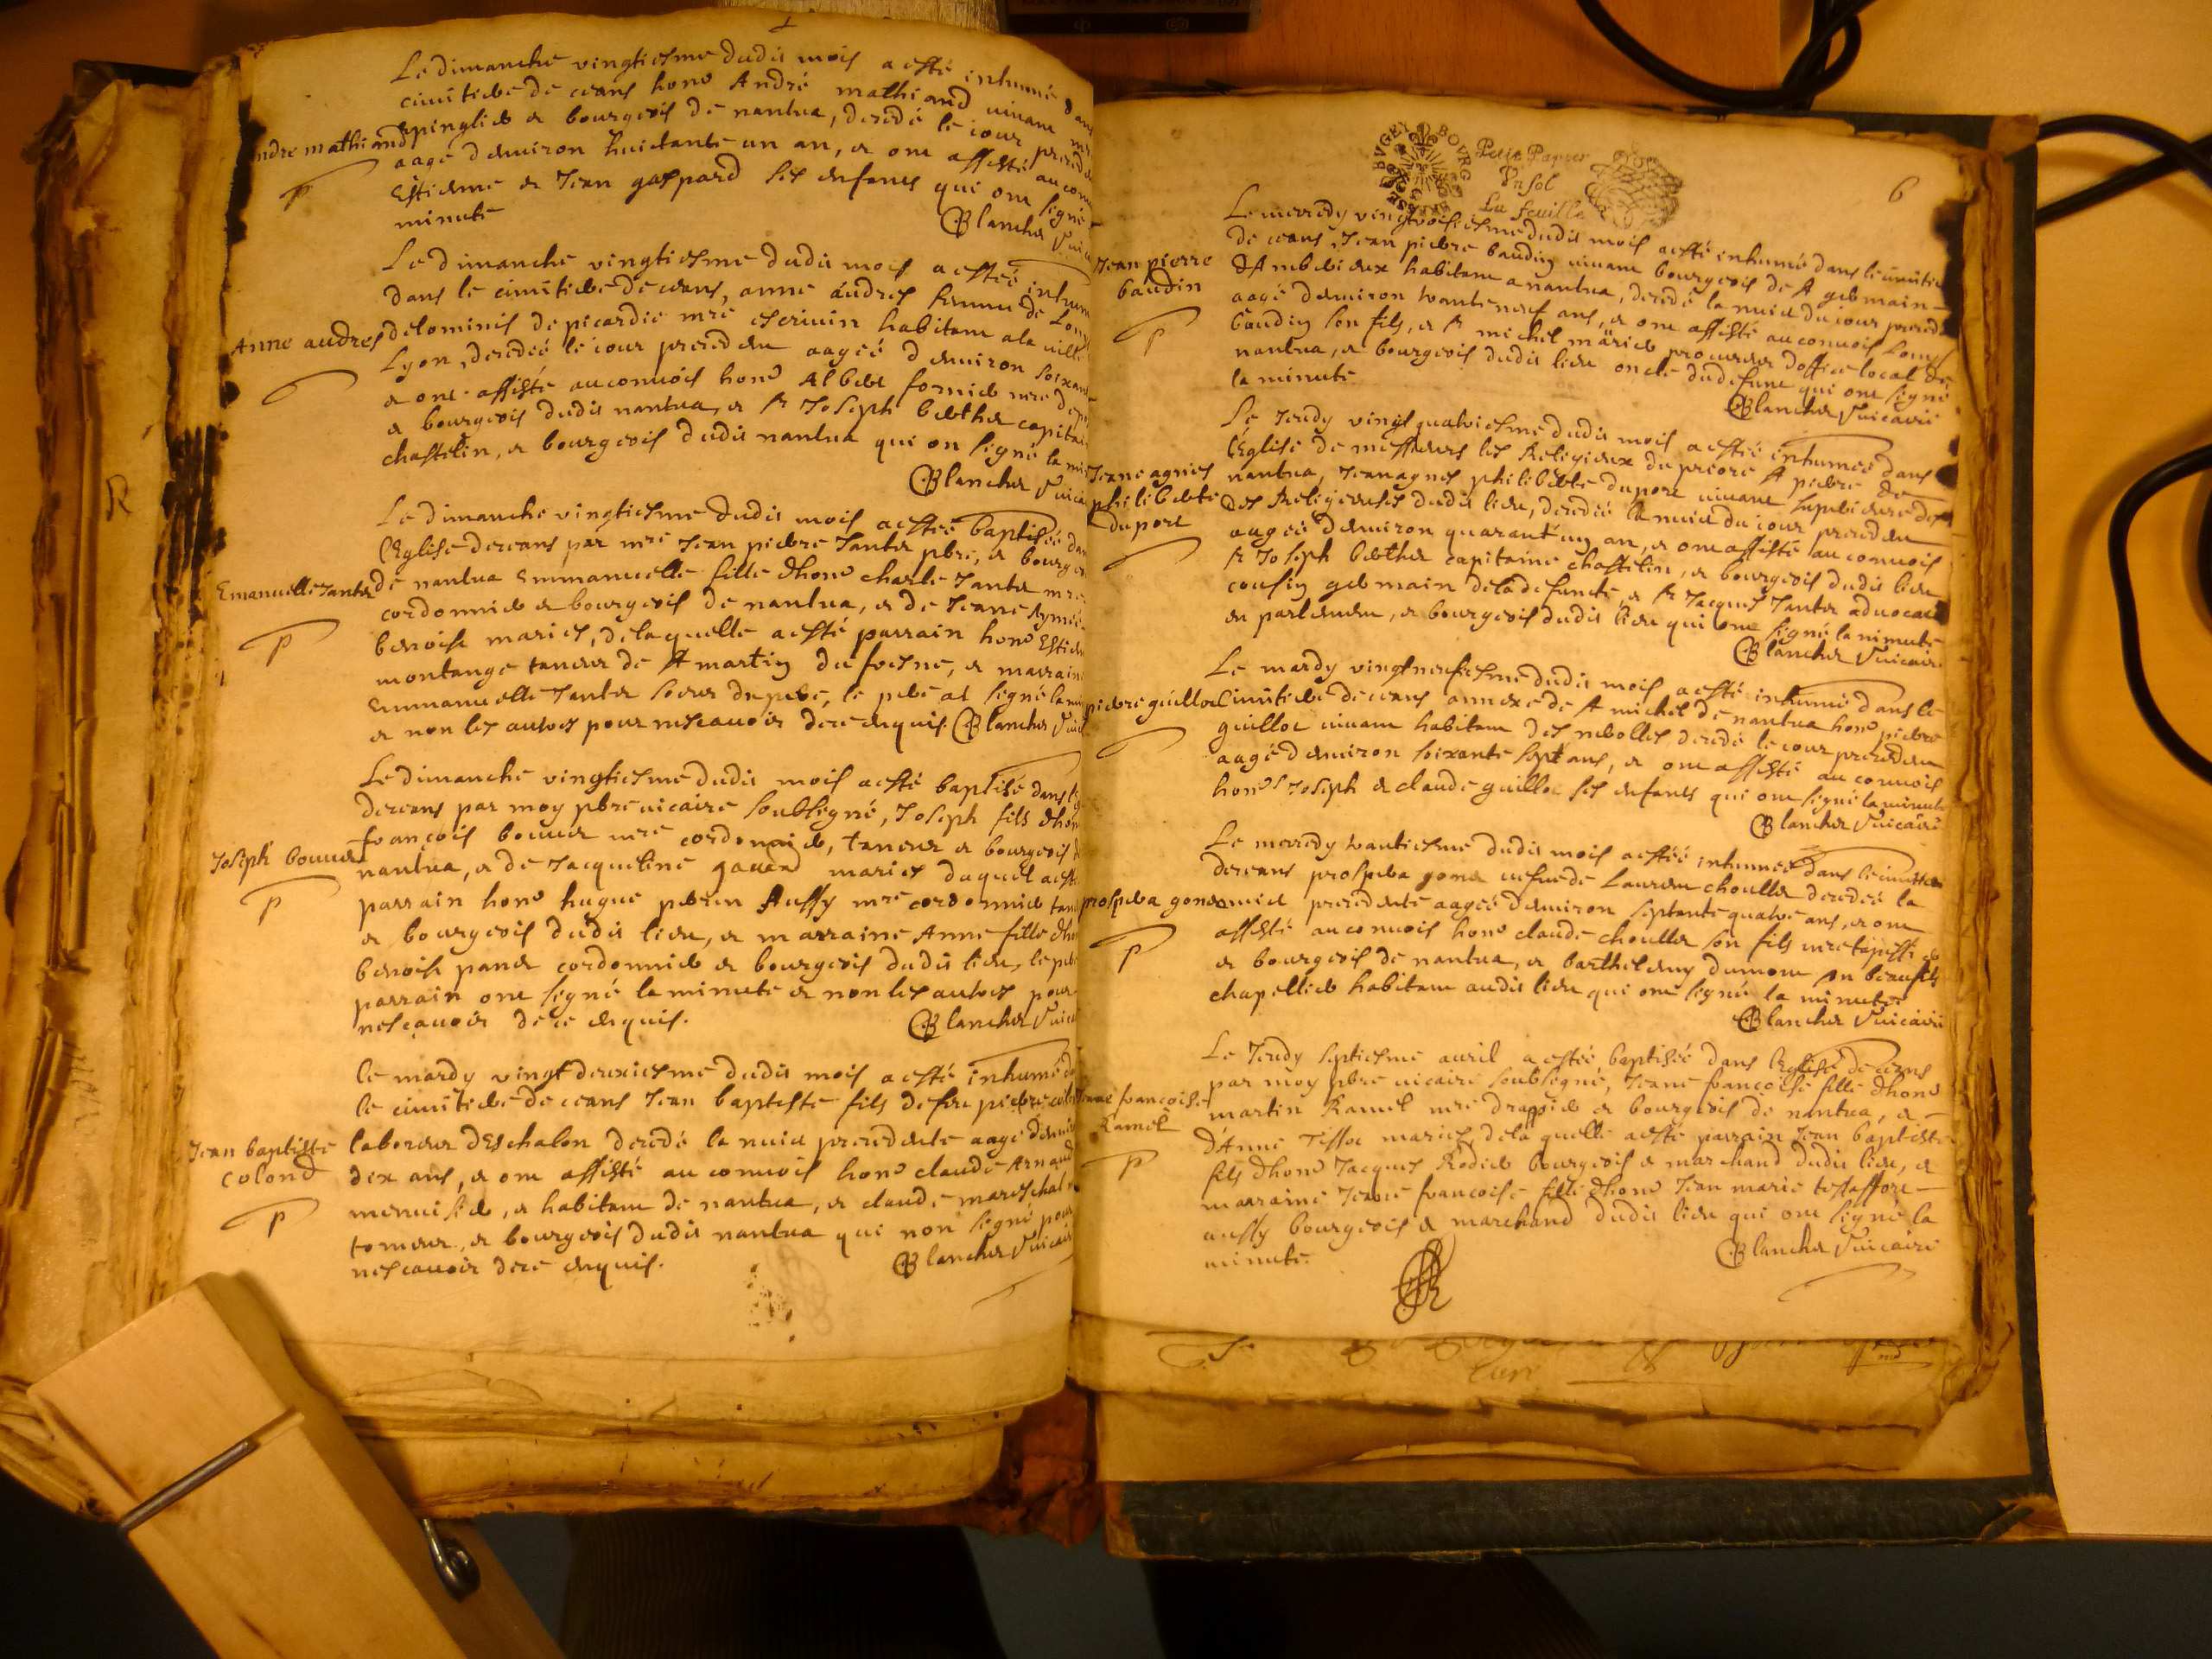 Le dimanche vingtiesme dudit mois a esté inhumé dans
cimitiere de ceans hono André mathiand vivant mre
Andre mathiand
espinglier et bourgeois de nantua, decedé le iour preced
aagé denviron huictante un an, et ont assisté au conv
Estienne et Jean gaspard ses enfants qui ont signé
minute
Blanchet Vicai
Le dimanche vingtiesme dudit mois a estée inhum
dans le cimitiere de ceans, anne audres femme de Lou
Anne audres
delominis de picardie mre escrivin habitant a la ville
Lyon, decedée le iour precedent aagée denviron soixant
et ont assisté au convois hono Albert fornier mre
et bourgeois dudit nantua, et sr Joseph berthet capitai
chastelin, et bourgeois dudit nantua qui on signé la mi
Blanchet Vicai
Le dimanche vingtiesme dudit mois a estée baptisée dan
l'Eglise de ceans par mre Jean pierre Jantet pbre, et bourge
Emanuelle Jantet
de nantua Emmanuelle fille dhono charle Jantet mre
cordonnier et bourgeois de nantua, et de Jeane Aymée
benoist mariés, de laquelle a esté parrain hono Estien
montange taneur de St martin du fresne, et marraine
Emmanuelle Jantet soeur du pere, le pere at signé la mi
et non les autres pour ne scavoir de ce enquis. Blanchet Vicai
Le dimanche vingtiesme dudit mois a esté baptisé dans l'eg
de ceans par moy pbre vicaire soubsigné, Joseph fils dhon
françois bouvet mre cordonnier, taneur et bourgeois d
Joseph bouvet
nantua, et de Jacqueline gauand mariés duquel a esté
parrain hono hugue perrin Aussy mre cordonnier tan
et bourgeois dudit lieu, et marraine Anne fille dho
benoist panet cordonnier et bourgeois dudit lieu, le pere
parrain ont signé la minute et non les autres pour
ne sçavoir de ce enquis.
Blanchet Vicai
le mardy vingt deuxiesme dudit mois a esté inhumé d
le cimitiere de ceans Jean baptiste fils de feu pierre colo
Jean baptiste
colond
laboreur d'Eschalon decedé la nuict precedente aagé denvir
dix ans, et ont assisté au convois hono claude Arnaud
menuisier, et habitant de nantua, et claude mareschal
torneur, et bourgeois dudit nantua qui non signé pour
ne scavoir de ce enquis.
Blanchet Vicair
BVGEY BOVRG
Petit Papier
Vn sol
La feuille
6
Le mercdy vingtroisiesme dudit mois a esté inhumé dans le cimitie
de ceans, Jean pierre baudin vivant bourgeois de St germain
Jean pierre
baudin
d'Amberieux habitant a nantua, decedé la nuict du iour preced
aagé denviron trante neuf ans, et ont assisté au convois Louys
baudin son fils, et sr michel marier procureur doffice local de
nantua, et bourgeois dudit lieu oncle du defunt qui ont signé
la minute
Blanchet Vicaire
Le Jeudy vingt quatriesme dudit mois a estée inhumée dans
l'Eglise de messieurs les Religieux du prioré St pierre de
Jeane agnies
philiberte
duport
nantua, Jeanagnes philiberte duport vivant superieure des
des Religieuses dudit lieu, decedée la nuict du iour precedent
aagée denviron quarant'un an, et ont assisté au convois
sr Joseph berthet capitaine chastelin, et bourgeois dudit lieu
cousin germain de la defuncte, et sr Jacques Jantet advocat
en parlement, et bourgeois dudit lieu qui ont signé la minute
Blanchet Vicaire
Le mardy vingtneufiesme dudit mois a esté inhumé dans le
pierre guillot
cimitiere de ceans annexe de St michel de nantua hono pierre
guillot vivant habitant des nerolles decedé le iour precedent
aagé denviron soixante sept ans, et ont assisté au convois
honos Joseph et claude guillot ses enfants qui ont signé la minute
Blanchet Vicaire
Le mercdy trantiesme dudit mois a estée inhumée dans le cimitiere
de ceans prospera gonet vefve de Laurent choullet decedée la
prospera gonet
nuict precedente aagée denviron septante quatre ans, et ont
assisté au convois hono claude choullet son fils mre tapissier
et bourgeois de nantua, et barthelemy dumont son beaufils
chapellier habitant audit lieu qui ont signé la minute
Blanchet Vicaire
Le Jeudy septiesme avril a estée baptisée dans l'Eglise de ceans
par moy pbre vicaire soubsigné, Jeane françoise fille dhono
Jeane françoise
Ramel
martin Ramel mre drappier et bourgeois de nantua, et
d'Anne Tissot mariés, de la quelle a esté parrain Jean baptiste
fils dhono Jacques Rodier bourgeois et marchand dudit lieu, et
marraine Jeane françoise fille dhono Jean marie testaffort
aussy bourgeois et marchand dudit lieu qui ont signé la
minute.
Blanchet Vicaire